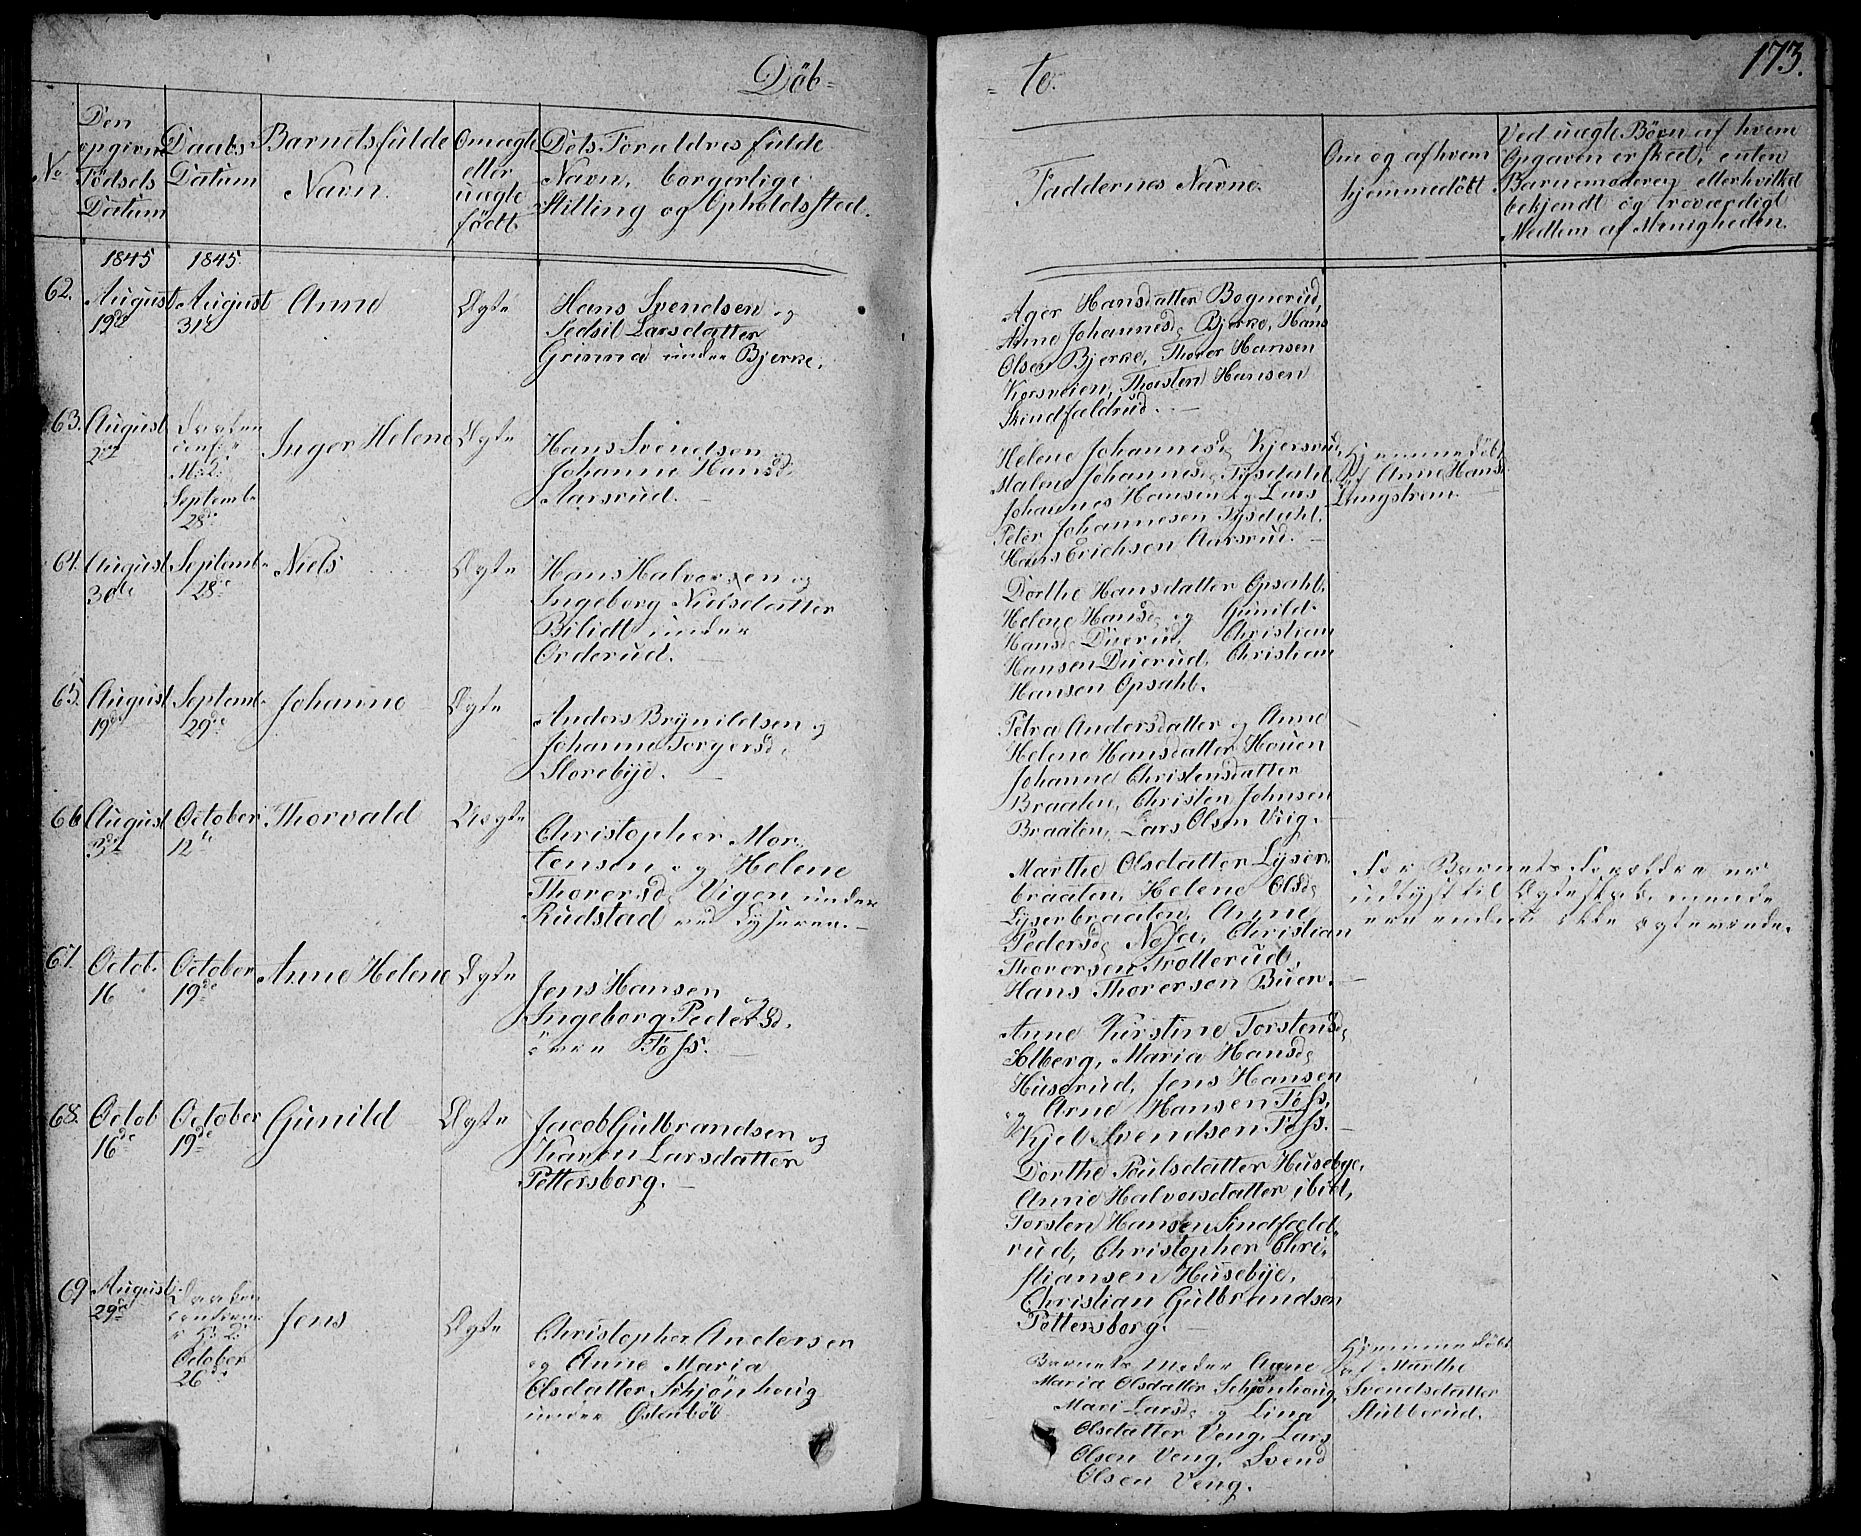 Döb-
-te.
173.
No
Den
opgivne
Fødsels
Datum
Daabs
Datum
Barnets fulde
Navn.
Om ægte
eller
uægte
født.
Dets Forældres fulde
Navn, borgerlige
Stilling og Opholdssted.
Faddernes Navne.
Om og af hvem
hjemmedöbt
Ved uægte Börn af hvem
Opgaven er skeet, enten
Barnemoderen eller hvilket
bekjendt og troværdigt
Medlem af Menigheden.
1845
1845.
62.
August
19de
August
31te
Anne
Ægte
Hans Svendsen og
Sidsil Larsdatter
Grinna under Bjerke.
Ager Hansdatter Bognerud,
Anne Johannesd. Bjerke, Hans
Olsen Bjerke, Thorer Hansen
Korsveien, Thorsten Hansen
Skindfældrud.
63.
August
2den
Daaben
conf: i
K: d:
Septemb
28de
Inger Helene
Ægte
Hans Svendsen
Johanne Hansd.
Aarsrud.
Helene Johannesd. Kjersrud,
Malene Johannesd. Tysdahl,
Johannes Hansen og Lars
Peter Johannesen Tysdahl.
Hans Erichsen Aarsrud.
Hjemmedöbt
af Anne Hansd.
Lungstrem.
64.
August
30te
Septemb.
28de
Niels
Ægte
Hans Halvorsen og
Ingeborg Nielsdatter
Bilidt under
Orderud.
Dorthe Hansdatter Opsahl,
Helene Hansd. og Gunild
Hansd. Duerud, Christian
Hansen Duerud, Christian
Hansen Opsahl.
65.
August
19de
Septemb.
29de
Johanne
Ægte
Anders Brynildsen og
Johanne Torgersd.
Storebye.
Petra Andersdatter og Anne
Helene Hansdatter Houen
Johanne Christensdatter
Braaten, Christen Johnsen
Braaten, Lars Olsen Viig.
66
August
3de
October
12te
Thorvald
Uægte
Christopher Mor-
tensen og Helene
Thorersd. Vigen under
Rudstad ved Lyseren.
Marthe Olsdatter Lyser-
braaten, Helene Olsd.
Lyserbraaten, Anne
Pedersd. Næss, Christian
Thorersen Trotterud,
Hans Thorersen Buer.
For Barnets Forældre er
udlyst til Ægteskab, mende
ere endnu ikke ægteviede.
67.
Octob.
16
October
19de
Anne Helene
Ægte
Jens Hansen og
Ingeborg Pedersd.
övre Foss.
Anne Kirstine Torstensd.
Solberg, Maria Hansd.
Huserud, Jens Hansen
og Arne Hansen Foss,
Kjel Svendsen Foss.
68.
Octob
16de
October
19de
Gunild
Ægte
Jacob Gulbrandsen og
Karen Larsdatter
Pottersborg.
Dorthe Poulsdatter Husebye,
Anne Halvorsdatter ibid,
Torsten Hansen Sindfæld-
rud, Christopher Chri-
stiansen Husebye,
Christian Gulbrandsen
Pottersborg.
69
August
29de
Daaben
confirm:
i K: d:
October
26de
Jens
Ægte
Christopher Andersen
og Anne Maria
Olsdatter Schjönhoug
under Ostenböl
Barnets Moder Anne
Maria Olsdatter Schjönhoug,
Mari Larsd. og Lina
Olsdatter Veng, Lars
Olsen Veng, Svend
Olsen Veng.
Hjemmedöbt
af Marthe
Svendsdatter
Stubberud.